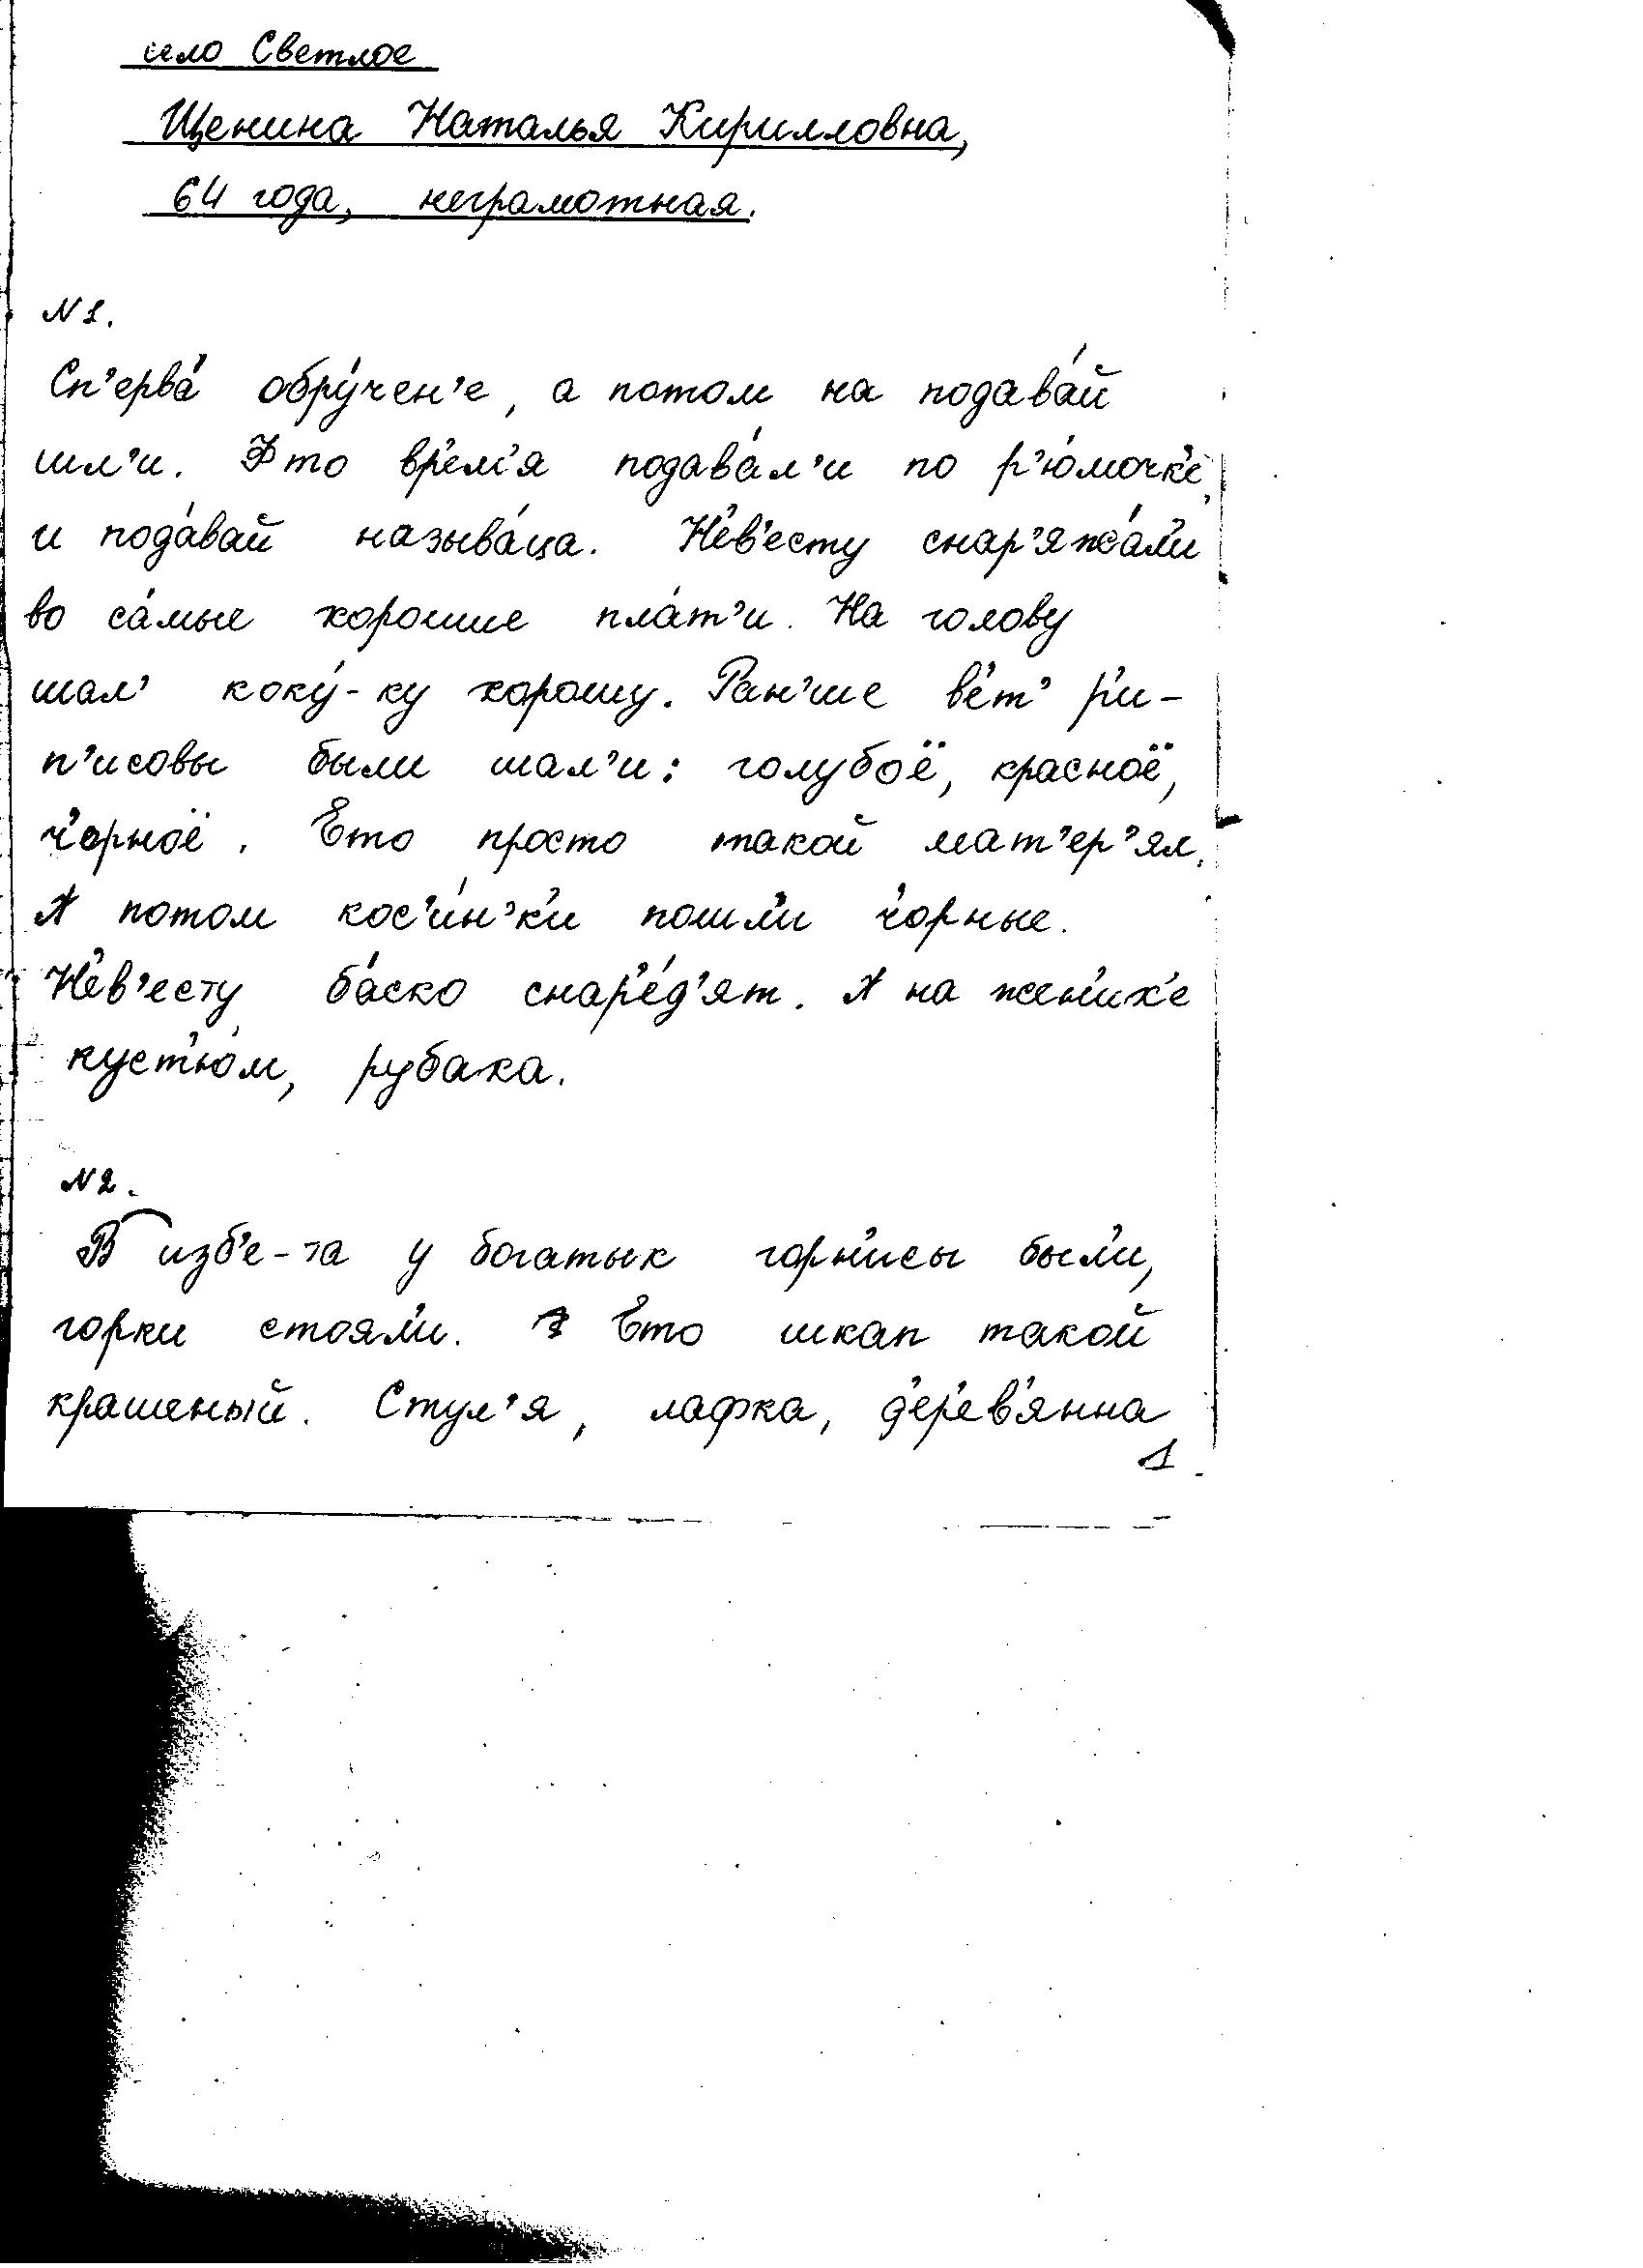 село Светлое
Щенина Наталья Кирилловна,
64 года, неграмотная.
N 1.
Сп'ерва́ обру́чен'е, а потом на подава́й
шл'и. Фто вр'ем'я подава́л'и по р'ю́мочк'е,
и пода́вай называ́ца. Н'ев'есту снар'яжа́л'и
во са́мые хорошие пла́т'и. На голову
шал' коку́-ку хорошу. Ран'ше в'ет' р'и-
п'исовы были шал'и: голубоё, красноё,
ч'орноё. Ето просто такой мат'ер'ял.
А потом кос'и́н'к'и пошл'и ч'орные.
Н'ев'есту ба́ско снар'е́д'ят. А на жен'их'е
куст'ю́м, рубака.
N 2.
В изб'е-та у богатык горн'исы был'и,
горки стоял'и. Ето шкап такой
крашеный. Стул'я, лафка, д'ер'ев'янна
1